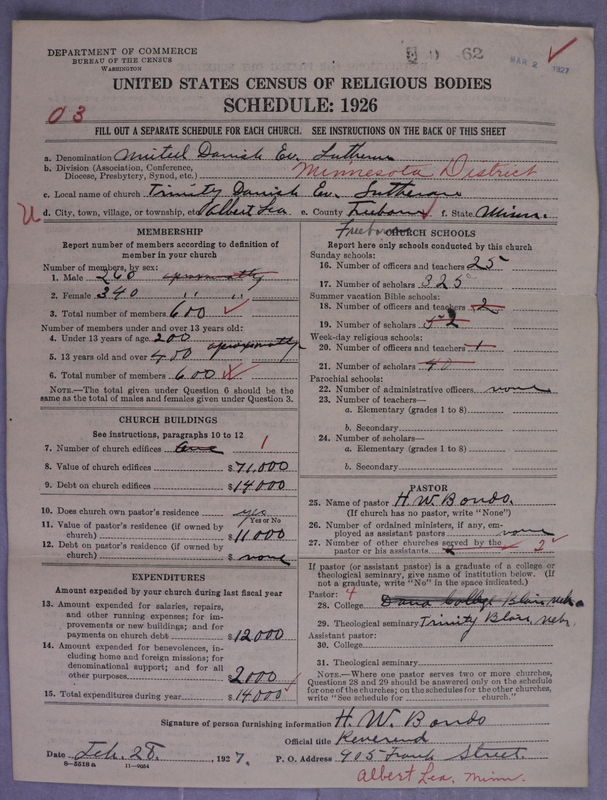 DEPARTMENT OF COMMERCE
BUREAU OF THE CENSUS
WASHINGTON
62
MAR 2 1927
UNITED STATES CENSUS OF RELIGIOUS BODIES
SCHEDULE: 1926
03
FILL OUT A SEPARATE SCHEDULE FOR EACH CHURCH. SEE INSTRUCTIONS ON THE BACK OF THIS SHEET
a. Denomination United Danish Ev. Lutheran
b. Division (Association, Conference, Diocese, Presbytery, Synod, etc.) Minnesota District
c. Local name of church Trinity Danish Ev. Lutheran
d. City, town, village, or township, etc. Albert Lea e. County Freeborn f. State Minn.
Freeborn
MEMBERSHIP
Report number of members according to definition of
member in your church
Number of members, by sex:
1. Male 260 aproxmattly
2. Female 340 " "
3. Total number of members 600
Number of members under and over 13 years old:
4. Under 13 years of age 200
5. 13 years old and over 400 aproxmattly
6. Total number of members 600
NOTE.—The total given under Question 6 should be
the same as the total of males and females given under Question 3.
CHURCH BUILDINGS
See instructions, paragraphs 10 to 12
7. Number of church edifices one 1
8. Value of church edifices $71,000
9. Debt on church edifices $14000
10. Does church own pastor's residence yes
Yes or No
11. Value of pastor's residence (if owned by
church) $11000
12. Debt on pastor's residence (if owned by
church) $ none
EXPENDITURES
Amount expended by your church during last fiscal year
13. Amount expended for salaries, repairs,
and other running expenses; for im-
provements or new buildings; and for
payments on church debt $12000
14. Amount expended for benevolences, in-
cluding home and foreign missions; for
denominational support; and for all
other purposes 2000
15. Total expenditures during year $14000
CHURCH SCHOOLS
Report here only schools conducted by this church
Sunday schools:
16. Number of officers and teachers 25
17. Number of scholars 325
Summer vacation Bible schools:
18. Number of officers and teachers 2
19. Number of scholars 52
Week-day religious schools:
20. Number of officers and teachers 1
21. Number of scholars 40
Parochial schools:
22. Number of administrative officers none
23. Number of teachers—
a. Elementary (grades 1 to 8)
b. Secondary
24. Number of scholars—
a. Elementary (grades 1 to 8)
b. Secondary
PASTOR
25. Name of pastor H. W. Bondo.
(If church has no pastor, write "None")
26. Number of ordained ministers, if any, em-
ployed as assistant pastors none
27. Number of other churches served by the
pastor or his assistants 2
If pastor (or assistant pastor) is a graduate of a college or
theological seminary, give name of institution below. (If
not a graduate, write "No" in the space indicated.)
Pastor: 4
28. College Dana College Blair, Neb.
29. Theological seminary Trinity Blair, Neb.
Assistant pastor:
30. College
31. Theological seminary
NOTE.—Where one pastor serves two or more churches,
Questions 28 and 29 should be answered only on the schedule
for one of the churches; on the schedules for the other churches,
write "See schedule for church."
Signature of person furnishing information H. W. Bondo
Official title Reverend
Date Feb. 28., 1927. P. O. Address 905 Frank Street.
8-5518a 11-9054
Albert Lea, Minn.